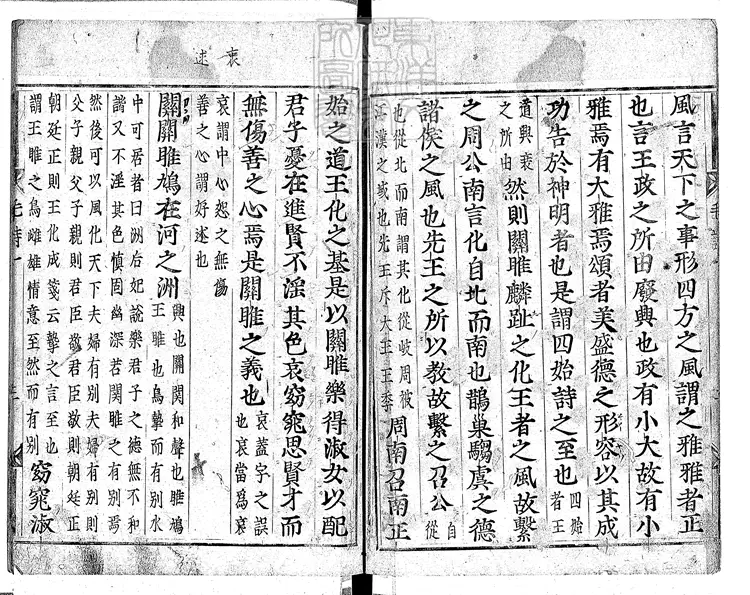 風言天下之事形四方之風謂之雅雅者正
也言王政之所由廢興也政有小大故有小
雅焉有大雅焉頌者美盛德之形容以其成
功告於神明者也是謂四始詩之至也四始者王
道興衰之所由然則關雎麟趾之化王者之風故繫
之周公南言化自北而南也鵲巢騶虞之德
諸侯之風也先王之所以教故繫之召公自從
也從北而南謂其化從岐周被江漢之域也先王斥大王王季周南召南正
始之道王化之基是以關雎樂得淑女以配
君子憂在進賢不淫其色哀窈窕思賢才而
無傷善之心焉是關雎之義也哀蓋字之誤也哀當為衷
哀謂中心恕之無傷善之心謂好逑也
關關雎鳩在河之洲興也關関和聲也雎鳩王雎也鳥摯而有別水
中可居者曰洲后妃說樂君子之德無不和
諧又不淫其色慎固幽深若関雎之有別焉
然後可以風化天下夫婦有別夫婦有別則
父子親父子親則君臣敬君臣敬則朝廷正
朝廷正則王化成箋云摯之言至也
謂王雎之鳥雌雄情意至然而有別窈窕淑
衷
述
毛詩一